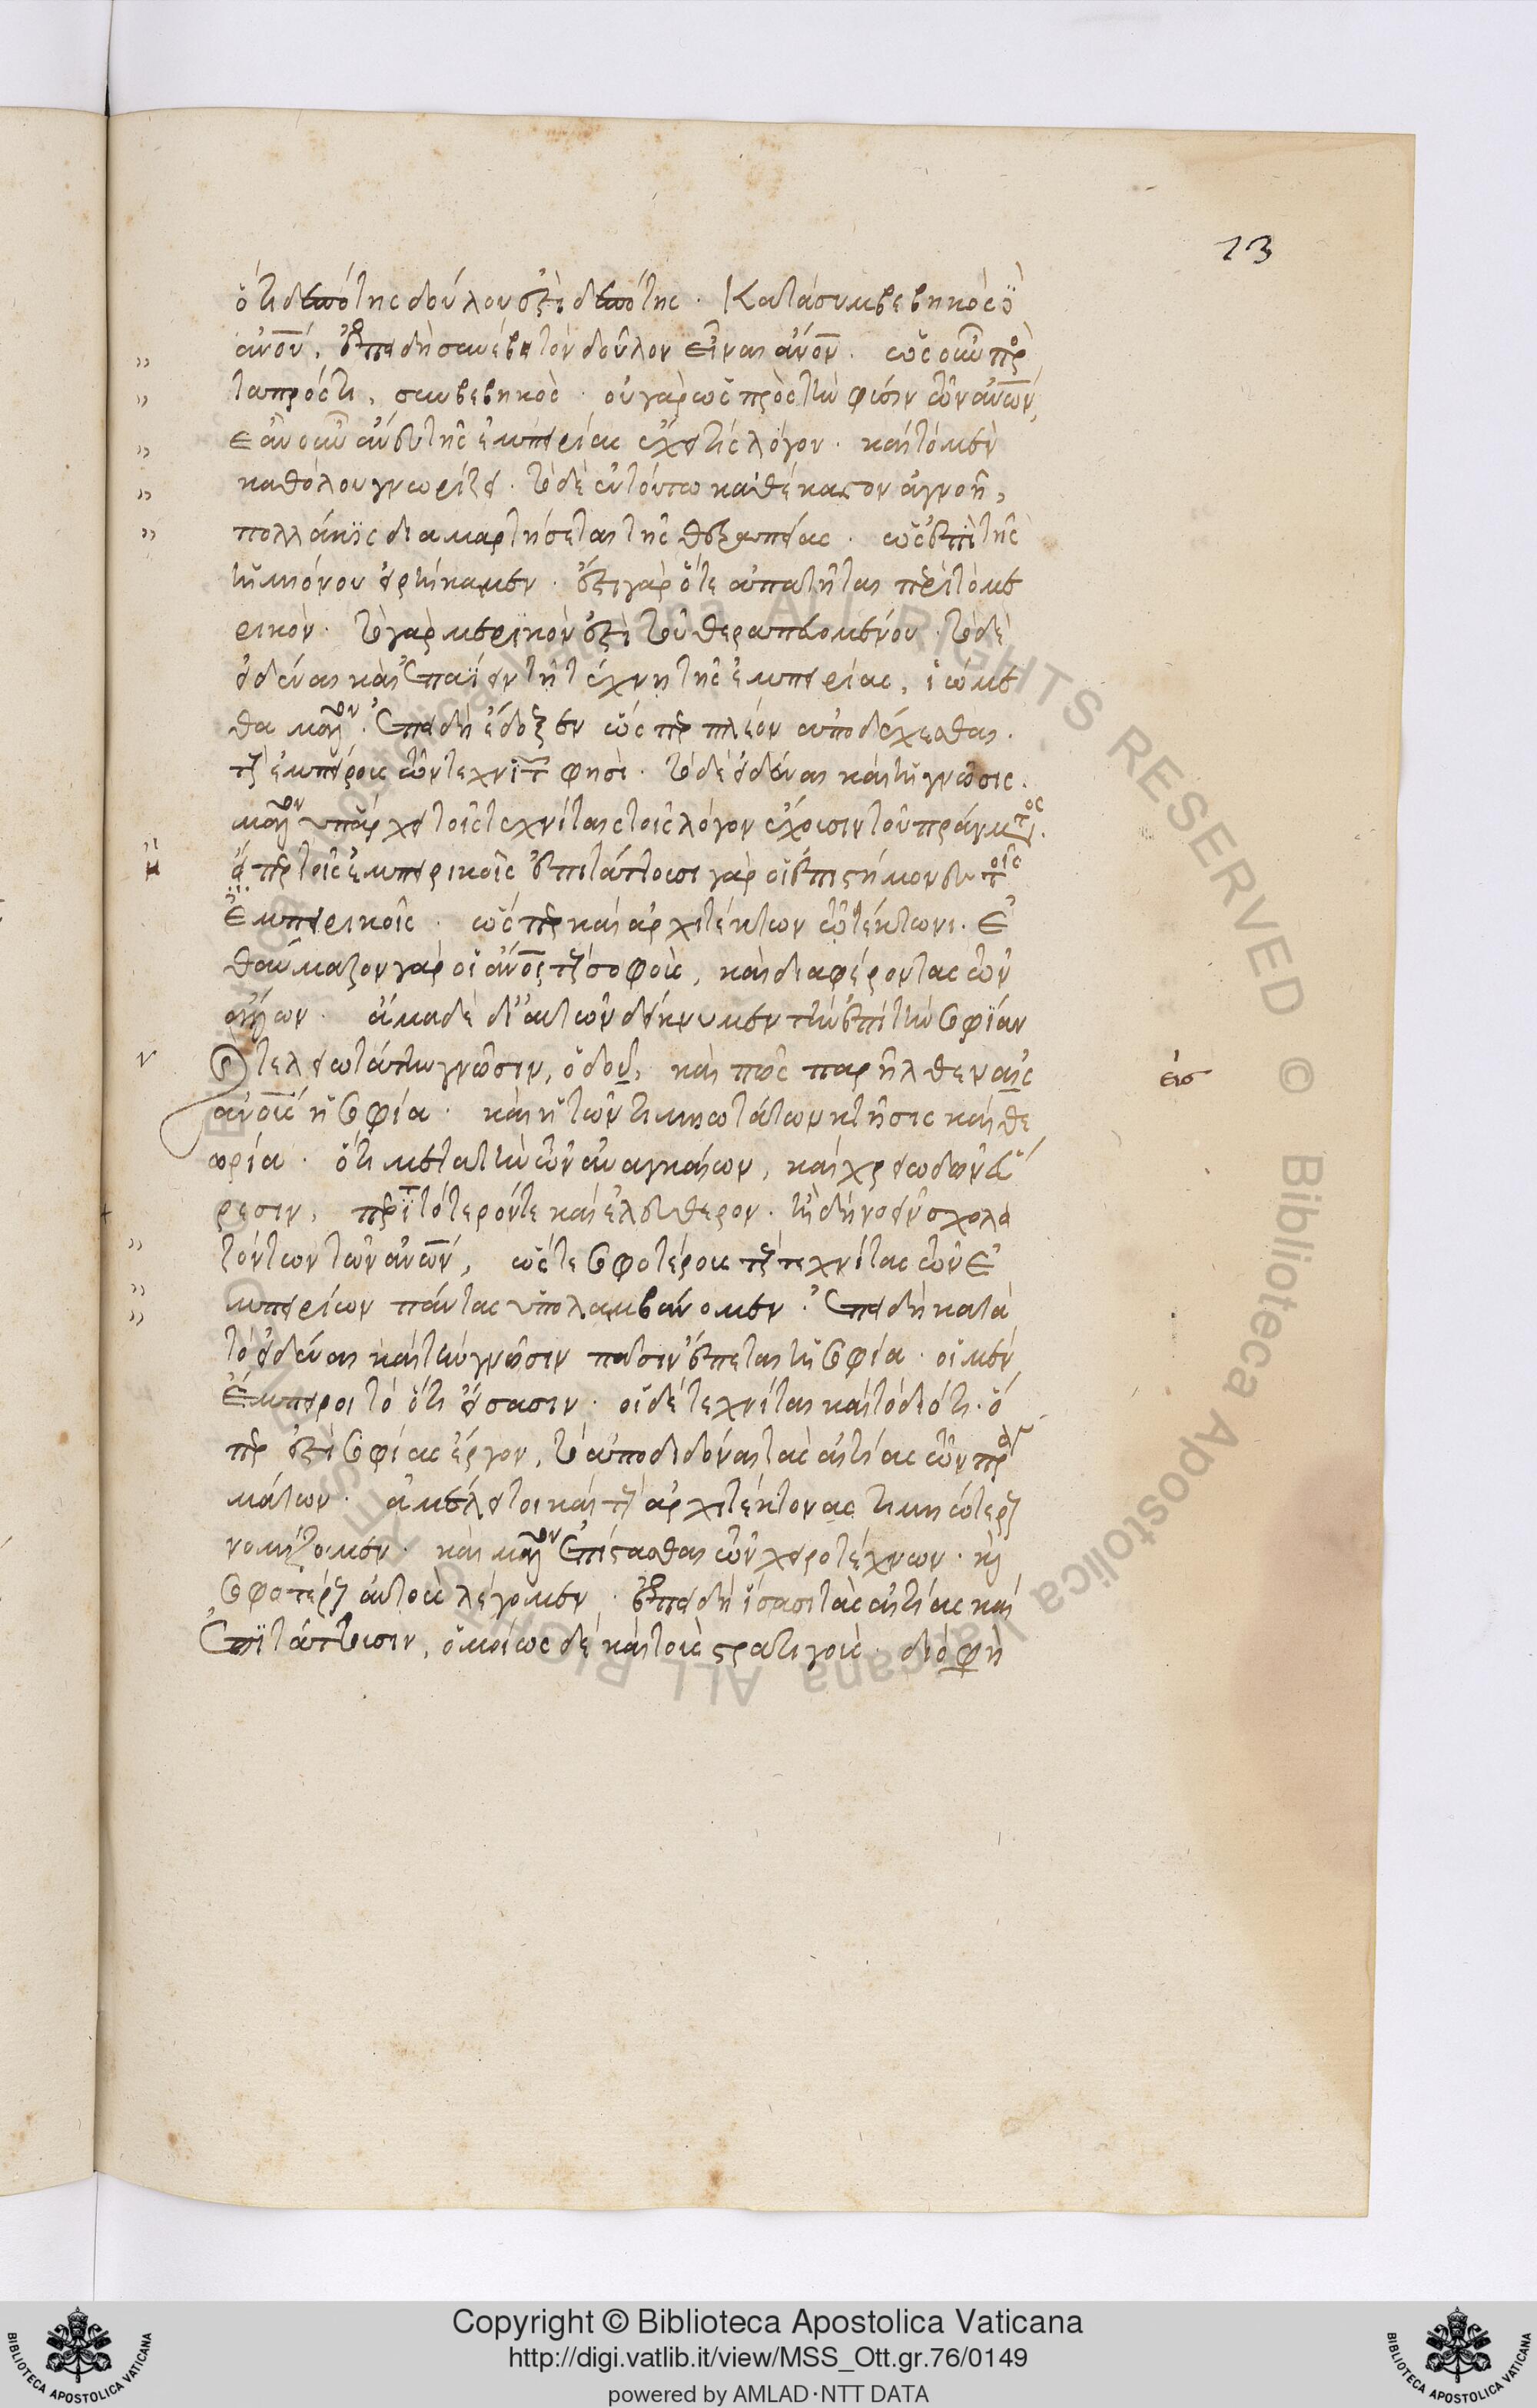 13
ὅτι δεσπότης δούλου ἐστὶ δεσπότης. Κατὰ συμβεβηκὸς δὲ
ἀνου, ἐπειδὴ συνέβη τὸν δοῦλον εἶναι ἀνον. ὡς οὖν πρὸς
τὰ πρός τι, συμβεβηκὸς. οὐ γὰρ ὡς πρὸς τὴν φύσιν τῶν ἀνων,
ἐὰν οὖν ἄνευ τῆς ἐμπειρίας ἔχει τις λόγον. καὶ τὸ μὲν
καθόλου γνωρίζει. τὸ δὲ ἐν τούτω καθέκαστον ἀγνοῆ,
πολλάκις διαμαρτήσεται τῆς θεραπείας. ὡς ἐπὶ τῆς
ἡμιόνου εἰρήκαμεν. ἔστι γὰρ ὅτε ἀπατῆται περὶ τὸ με
ρικὸν. τὸ γὰρ μερικὸν ἐστὶ τοῦ θεραπευομένου. τὸ δὲ
εἰδέναι καὶ ἐπαΐειν τῆ τέχνη τῆς ἐμπειρίας, ἰώμε
θα μᾶλλον. ἐπειδὴ ἔδοξεν ὥσπερ πλέον ἀποδέχεσθαι.
τοὺς ἐμπείρους τῶν τεχνιτῶν φησὶ. τὸ δὲ εἰδέναι καὶ ἡ γνῶσις.
μᾶλλον ὑπάρχει τοῖς τεχνίταις τοῖς λόγον ἔχουσιν τοῦ πράγματος.
εἴπερ τοῖς ἐμπειρικοῖς ἐπιτάττουσι γὰρ οἱ ἐπιστήμονες τοῖς
ἐμπειρικοῖς. ὥσπερ καὶ ἀρχιτέκτων τῶ τέκτωνι. ἐ
θαύμαζον γὰρ οἱ ἀνοι τοὺς σοφοὺς, καὶ διαφέροντας τῶν
ἄλλων. ἅμα δὲ δι' αὐτῶν δείκνυμεν τὴν ἐπὶ τὴν σοφίαν
τελειωτάτην γνῶσιν, ὁδου, καὶ πῶς παρῆλθεν αις
εἰσ
ἀνους ἡ σοφία. καὶ ἡ τῶν τιμιωτάτων κτῆσις καὶ θε
ωρία. ὅτι μετὰ τὴν τῶν ἀναγκαίων, καὶ χρειωδῶν εὕ
ρεσιν, περιττότερόν τε καὶ ἐλεύθερον. ἤδη νοεῖν σχολα
τόντων τῶν ἀνων, ὥστε σοφοτέρους τοὺς τεχνίτας τῶν ἐ
μπειρίων πάντας ὑπολαμβάνομεν. ἐπειδὴ κατὰ
τὸ εἰδέναι καὶ τὴν γνῶσιν πᾶσιν ἕπεται ἡ σοφία. οἱ μὲν
ἔμπειροι τὸ ὅτι ἴσασιν. οἱ δὲ τεχνίται καὶ τὸ διότι. ὅ
περ ἐστὶ σοφίας ἔργον, τὸ ἀποδιδόναι τὰς αἰτίας τῶν πραγ
μάτων. ἀμέλει τοι καὶ τοὺς ἀρχιτέκτονας τιμιωτέρους
νομίζομεν. καὶ μᾶλλον ἐπίστασθαι τῶν χειροτέχνων. καὶ
σοφοτέρους αὐτοὺς λέγομεν. ἐπειδὴ ἴσασι τὰς αἰτίας καὶ
ἐπιτάττουσιν, ὁμοίως δὲ καὶ τοὺς στρατιγοὺς. διό φη
Copyright © Biblioteca Apostolica Vaticana
http://digi.vatlib.it/view/MSS_Ott.gr.76/0149
powered by AMLAD·NTT DATA
BIBLIOTECA APOSTOLICA VATICANA
BIBLIOTECA APOSTOLICA VATICANA